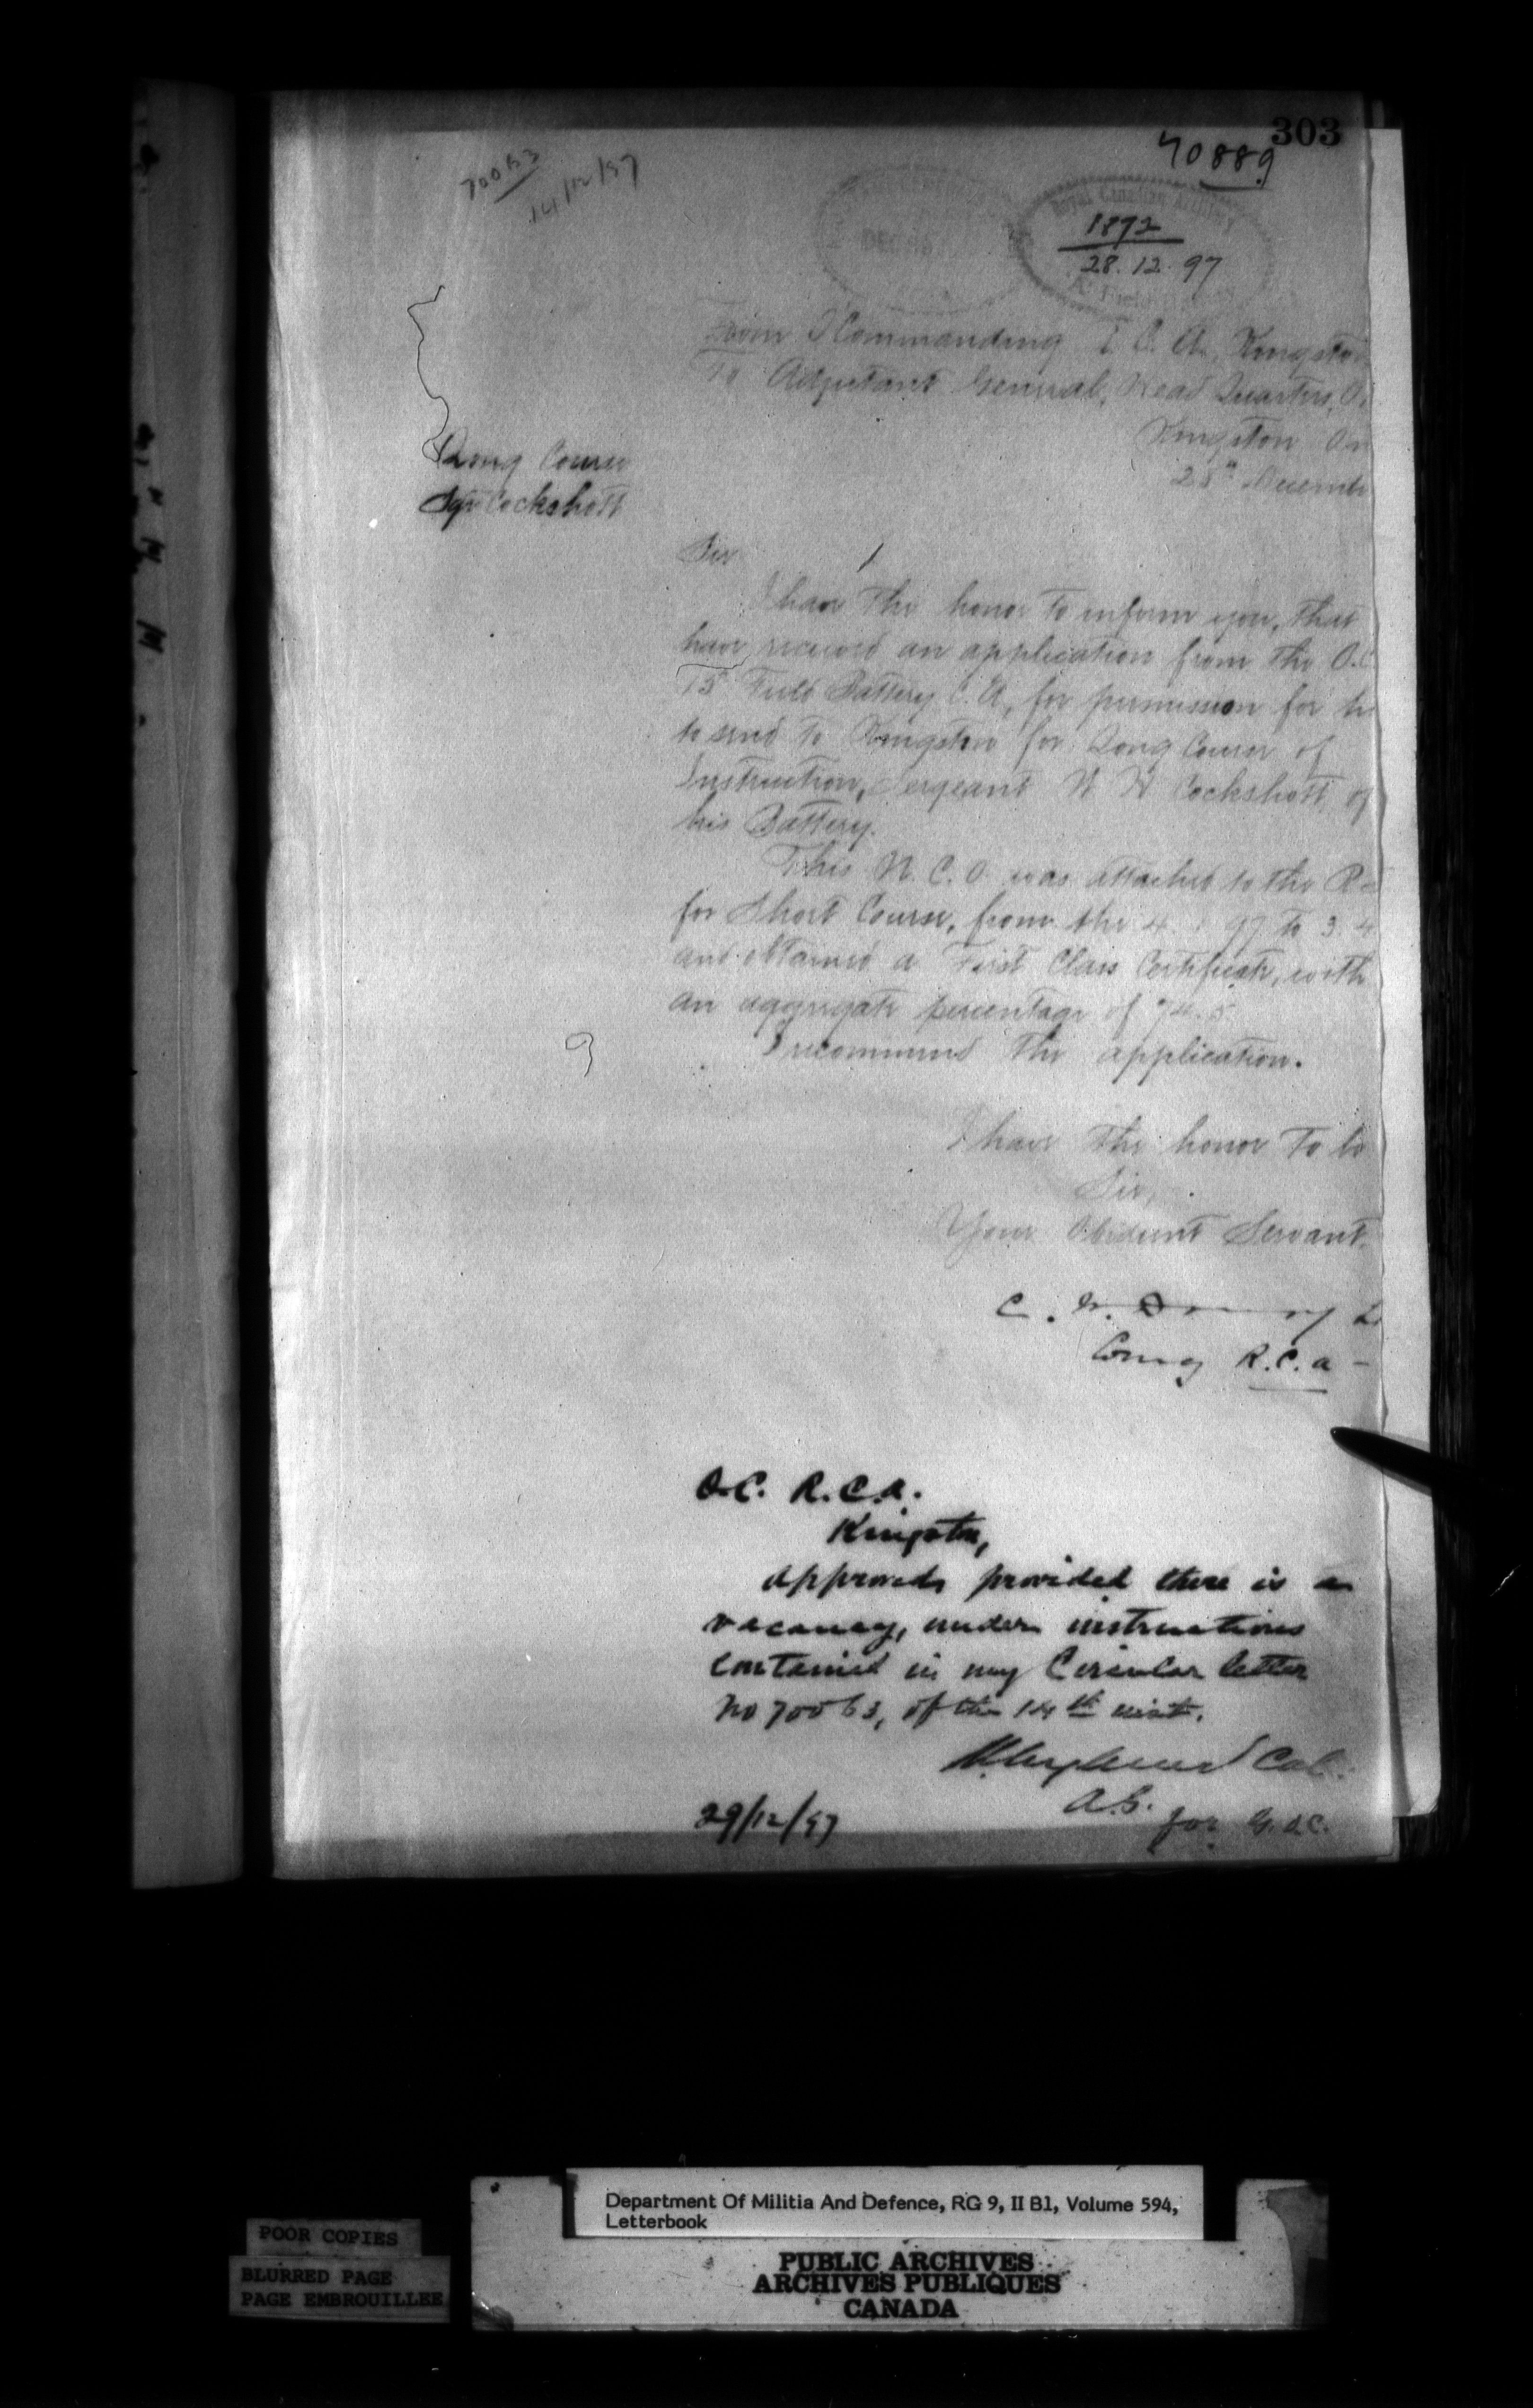 303
70889
70063
14/12/97
DEC
Royal Canadian Artillery
1892
28.12.97
"A" Field Battery
From Commanding R.C.A. Kingston
To Adjutant General, Head Quarters, O
Kingston On
28th Decemb
Long Course
Sgt Cockshott
Sir
I have the honor to inform you, that
have received an application from the O.C.
15 Field Battery C.A., for permission for h
to send to Kingston for Long Course of
Instruction, Sergeant W H Cockshott of
his Battery.
This N.C.O. was attached to the R
for Short Course, from the 4. 1 97 to 3. 4
and obtained a First Class Certificate, with
an aggregate percentage of 74.5.
I recommend the application.
I have the honor to be
Sir,
Your Obedient Servant.
C. W. Drury L
Comg R.C.A -
O.C. R.C.A.
Kingston,
Approved, provided there is a
vacancy, under instructions
contained in my Circular letter
No 70063, of the 14th inst.
Col.
A.G. for G.O.C.
29/12/97
Department Of Militia And Defence, RG 9, II B1, Volume 594,
Letterbook
POOR COPIES
BLURRED PAGE
PAGE EMBROUILLEE
PUBLIC ARCHIVES
ARCHIVES PUBLIQUES
CANADA